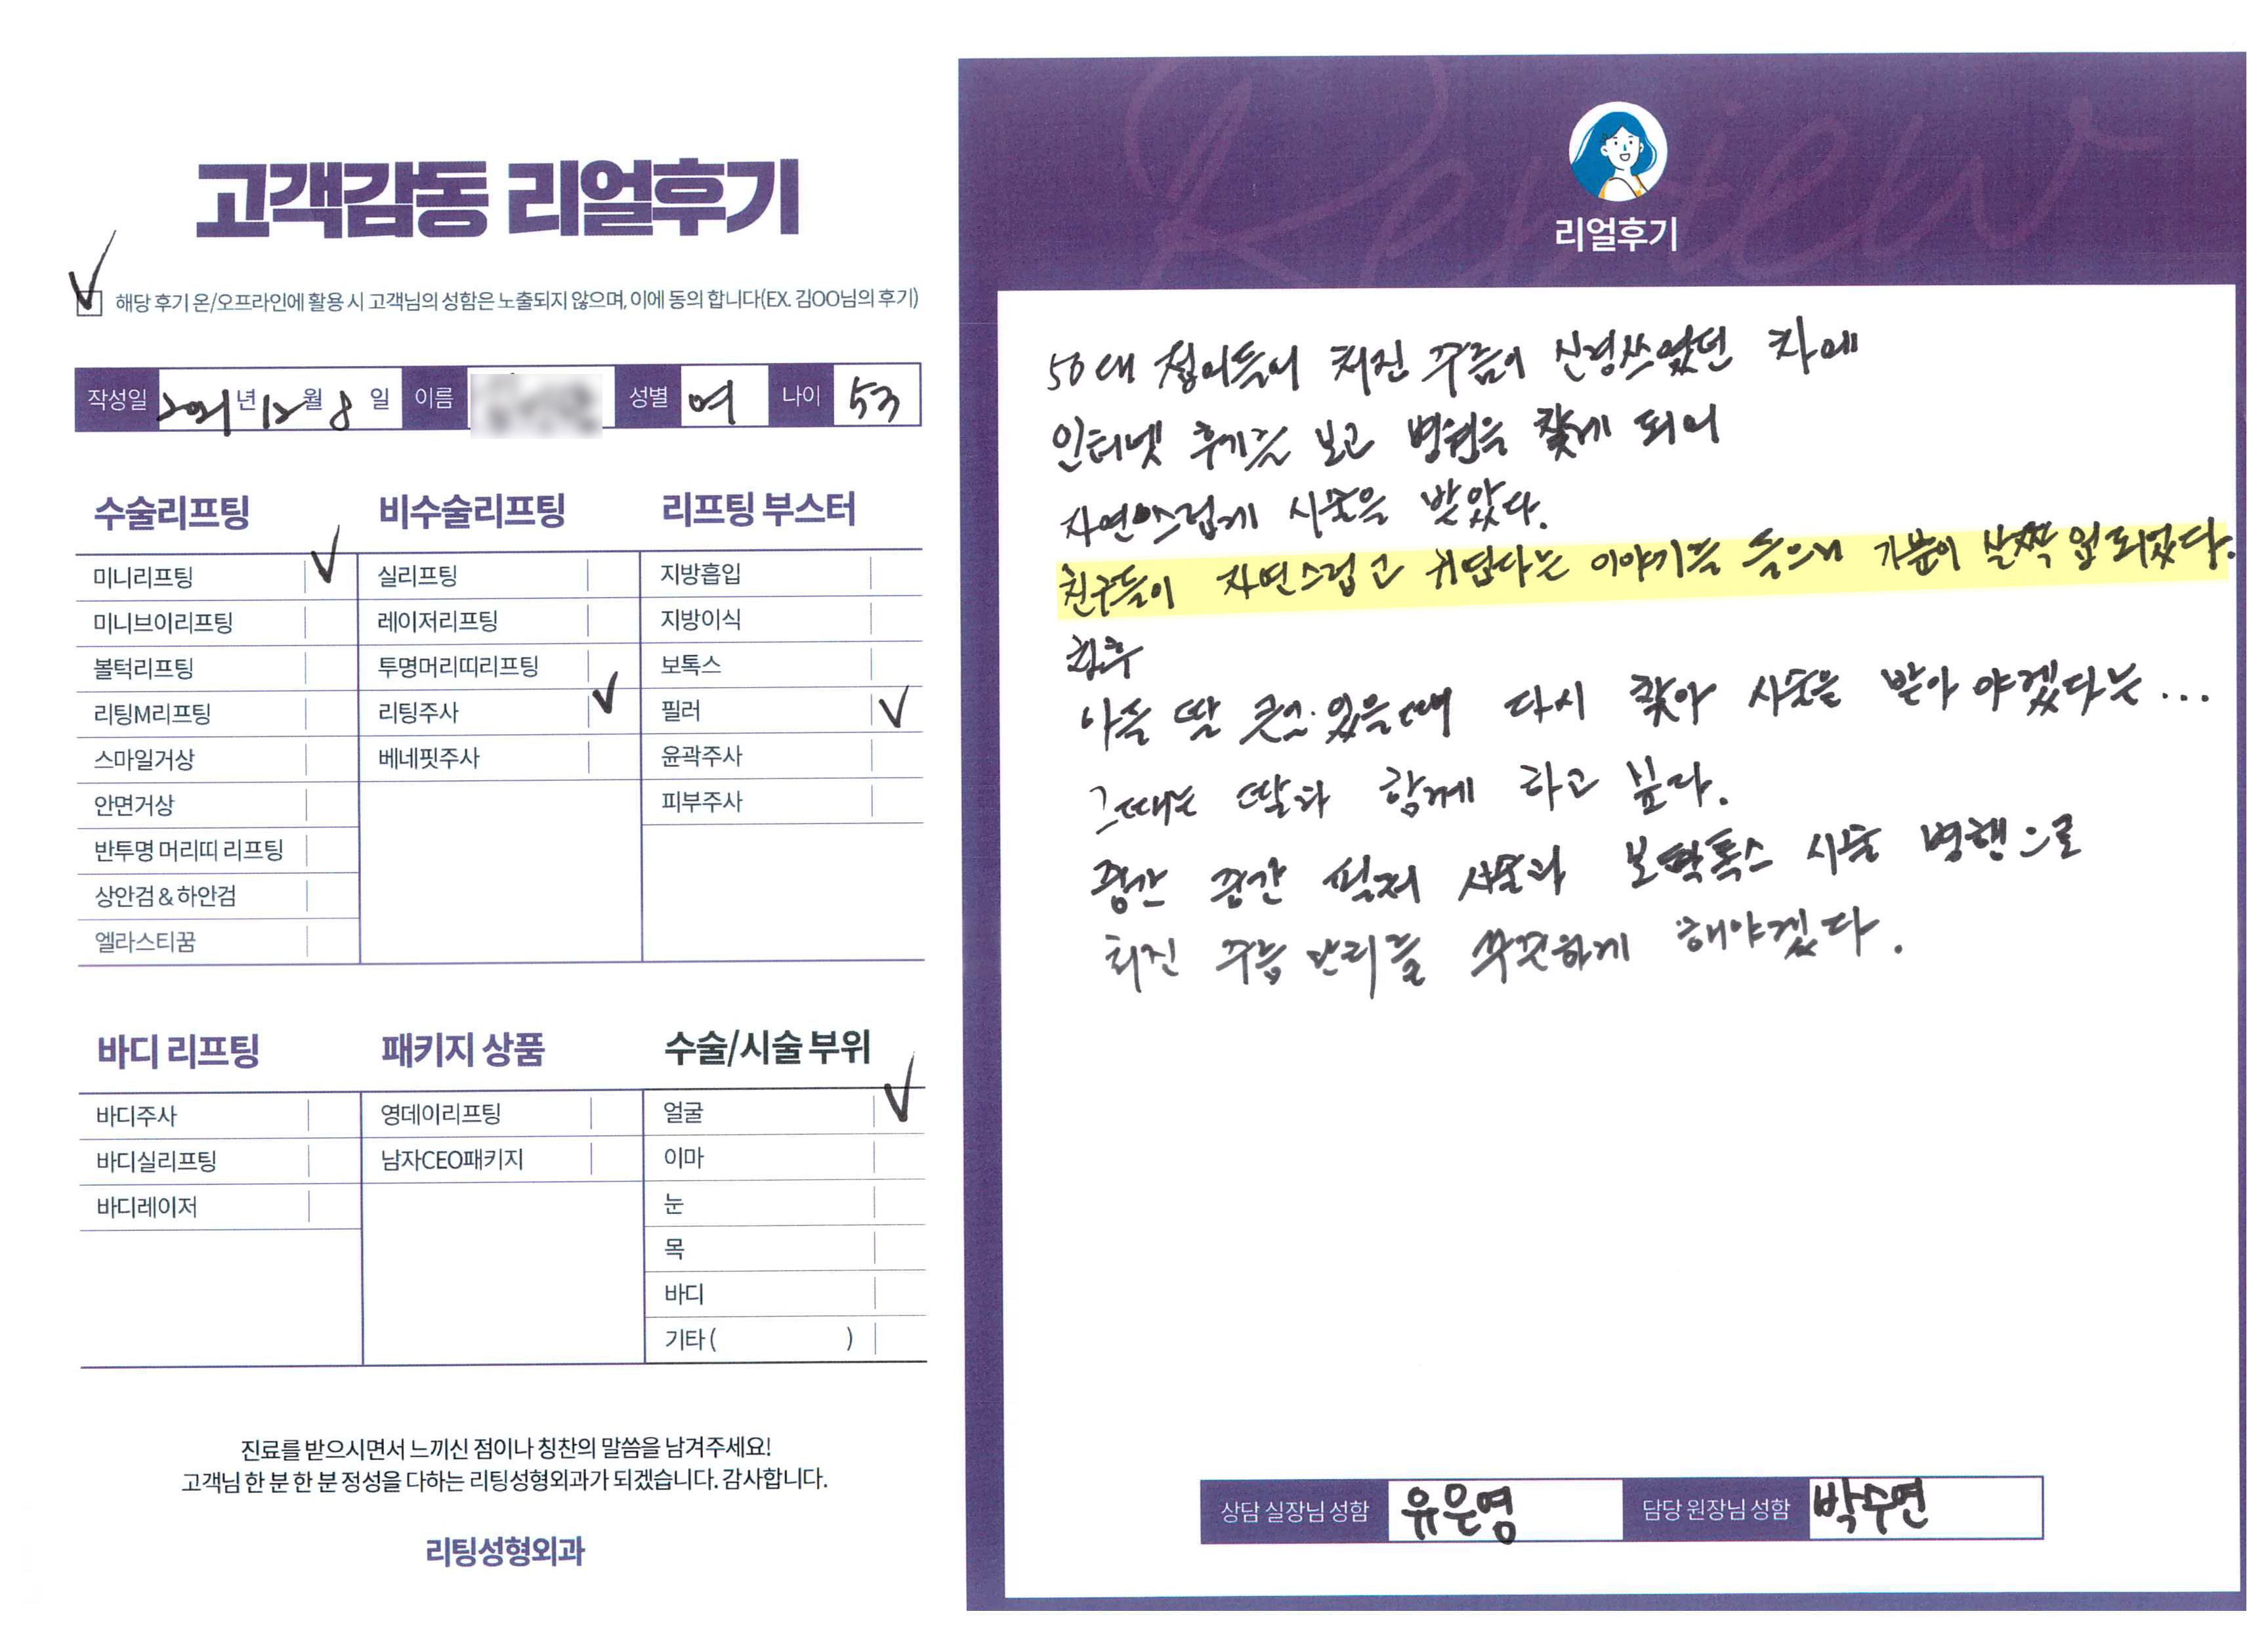 고객감동 리얼후기
해당 후기 온/오프라인에 활용 시 고객님의 성함은 노출되지 않으며, 이에 동의 합니다(EX. 김OO님의 후기)
작성일 2021년 12월 8일 이름 성별 여 나이 53
수술리프팅
미니리프팅
미니브이리프팅
볼턱리프팅
리팅M리프팅
스마일거상
안면거상
반투명 머리띠 리프팅
상안검 & 하안검
엘라스티꿈
비수술리프팅
실리프팅
레이저리프팅
투명머리띠리프팅
리팅주사
베네핏주사
리프팅 부스터
지방흡입
지방이식
보톡스
필러
윤곽주사
피부주사
바디 리프팅
바디주사
바디실리프팅
바디레이저
패키지 상품
영데이리프팅
남자CEO패키지
수술/시술 부위
얼굴
이마
눈
목
바디
기타 ( )
진료를 받으시면서 느끼신 점이나 칭찬의 말씀을 남겨주세요!
고객님 한 분 한 분 정성을 다하는 리팅성형외과가 되겠습니다. 감사합니다.
리팅성형외과
Review
리얼후기
50대 접어들어 처진 주름이 신경쓰였던 차에
인터넷 후기를 보고 병원을 찾게 되어
자연스럽게 시술을 받았다.
친구들이 자연스럽고 귀엽다는 이야기를 들으니 기분이 살짝 업 되었다.
향후
아들 딸 있을때 다시 찾아 시술을 받아야겠다는...
그때는 딸과 함께 하고 싶다.
중간 중간 필러 시술과 보톡스 시술 병행으로
처진 주름 관리를 꾸준하게 해야겠다.
상담 실장님 성함 유은영 담당 원장님 성함 박수연